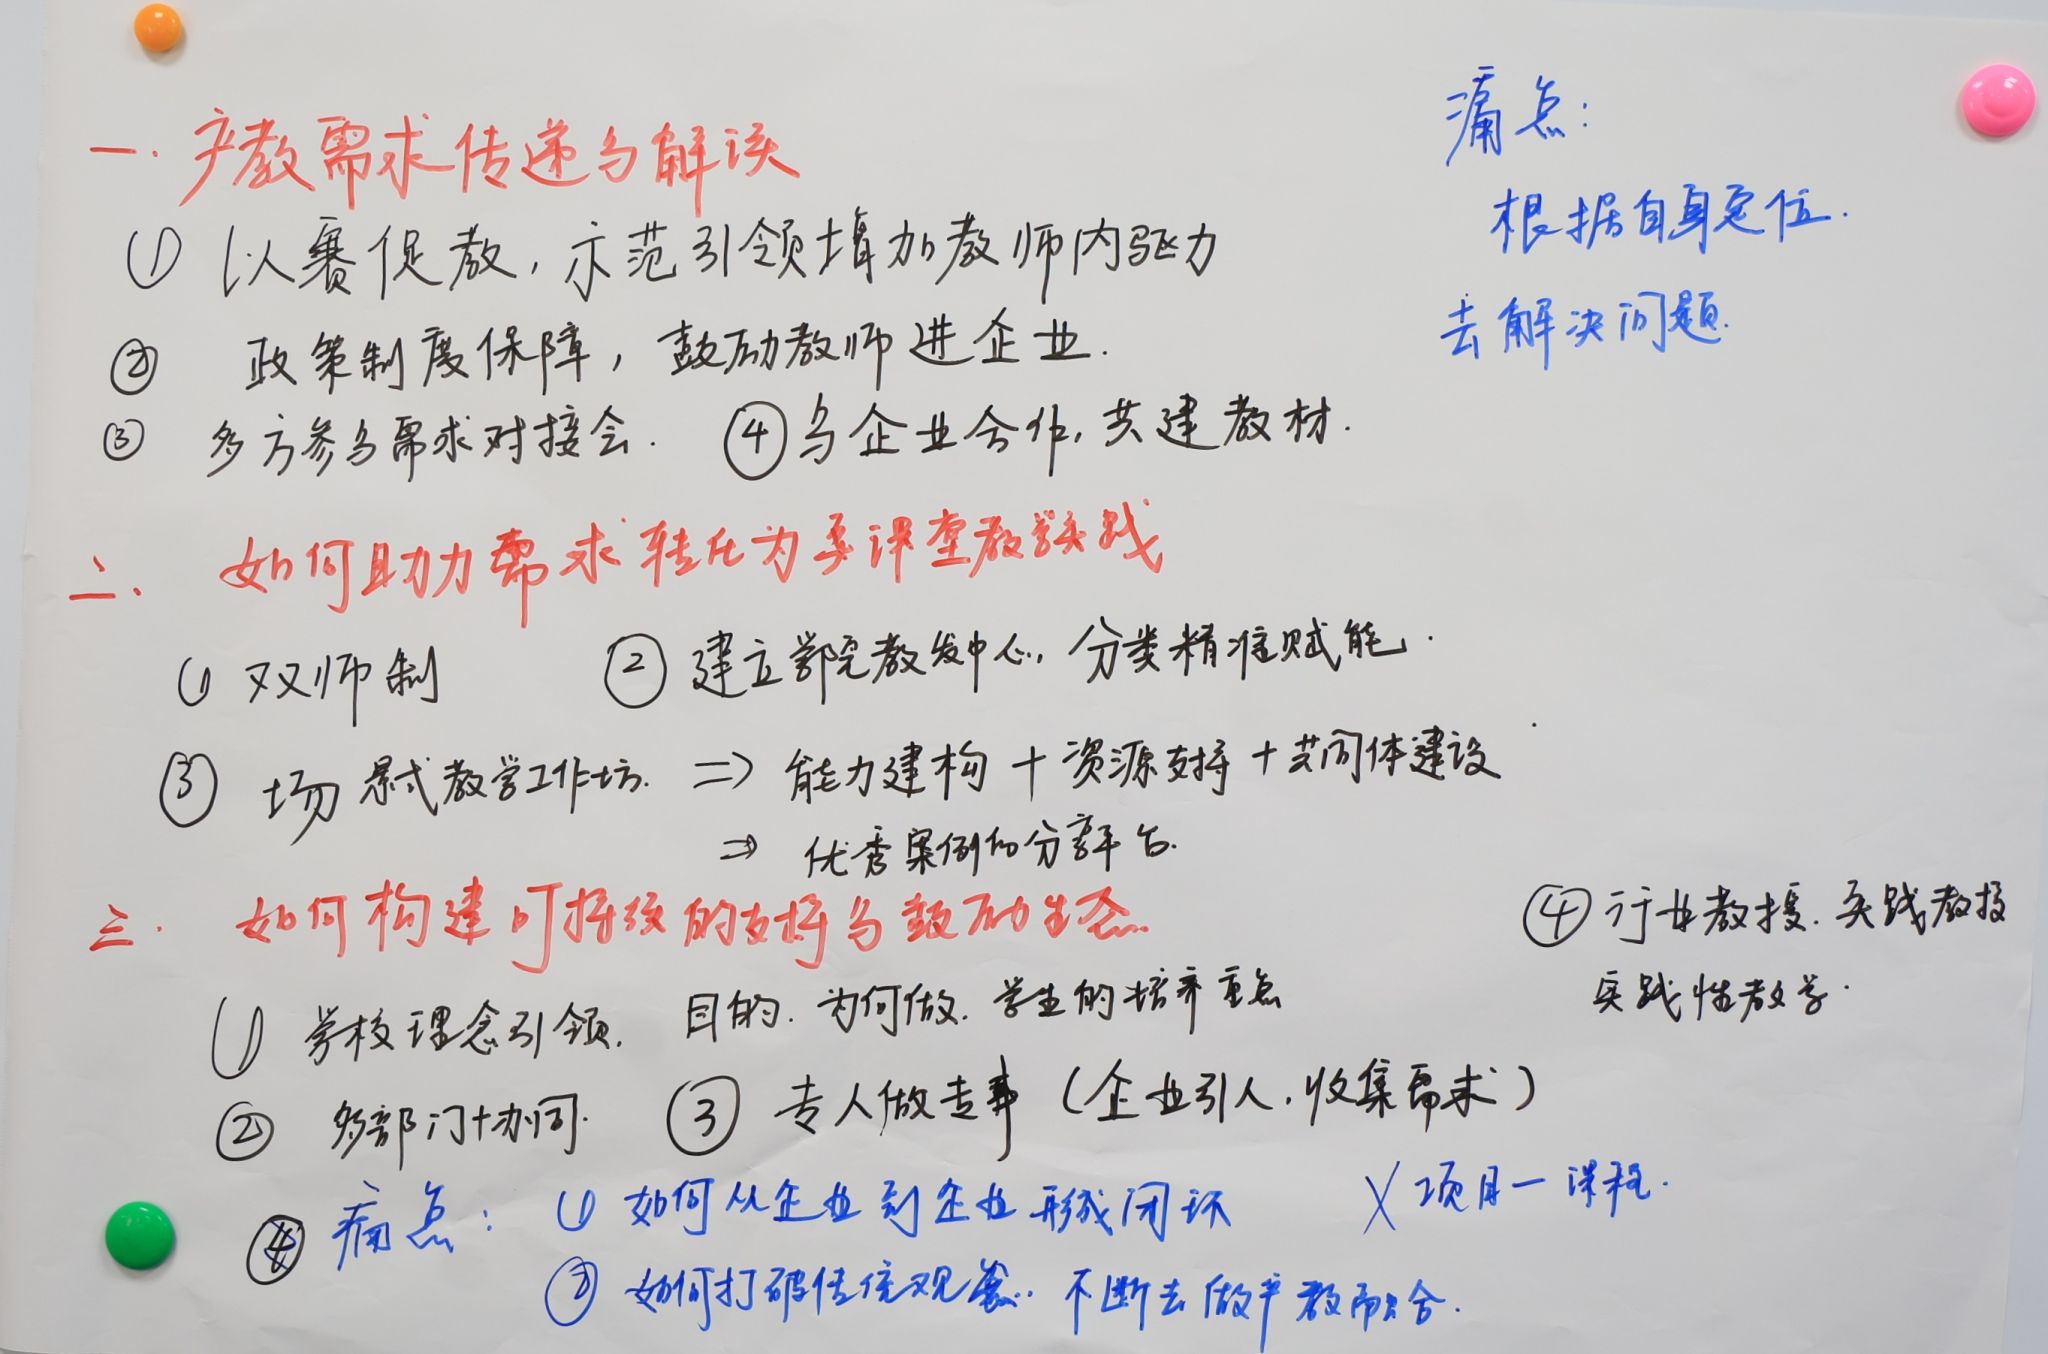 一. 产教需求传递与解读
① 以赛促教, 示范引领增加教师内驱力
② 政策制度保障, 鼓励教师进企业.
③ 多方参与需求对接会. ④ 与企业合作, 共建教材.
痛点:
根据自身定位.
去解决问题.
二. 如何助力需求转化为真课堂教学实践
① 双师制 ② 建立学院教发中心, 分类精准赋能.
③ 场景式教学工作坊. => 能力建构 + 资源支持 + 共同体建设
=> 优秀案例的分享平台.
三. 如何构建可持续的支持与鼓励生态.
① 学校理念引领. 目的. 为何做. 学生的培养重点
② 多部门协同. ③ 专人做专事 (企业引人, 收集需求)
④ 行业教授. 实践教授
实践性教学.
痛点: ① 如何从企业到企业形成闭环 X 项目一课程.
② 如何打破传统观念. 不断去做产教融合.